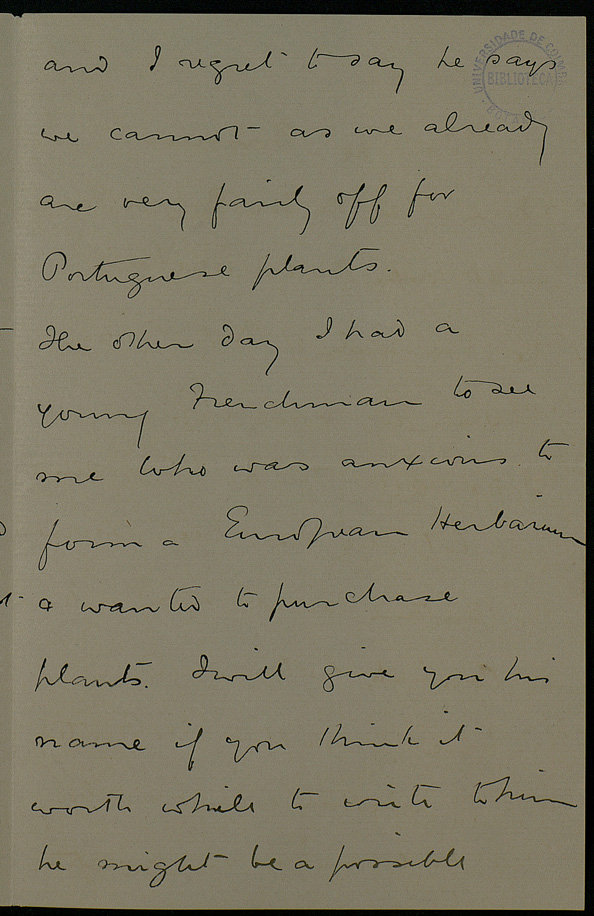 UNIVERSIDADE DE COIMBRA
BIBLIOTECA
and I regret to say he says
we cannot as we already
are very fairly off for
Portuguese plants.
The other day I had a
young Frenchman to see
me who was anxious to
form a European Herbarium
& wanted to purchase
plants. I will give you his
name if you think it
worth while to write to him
he might be a possible